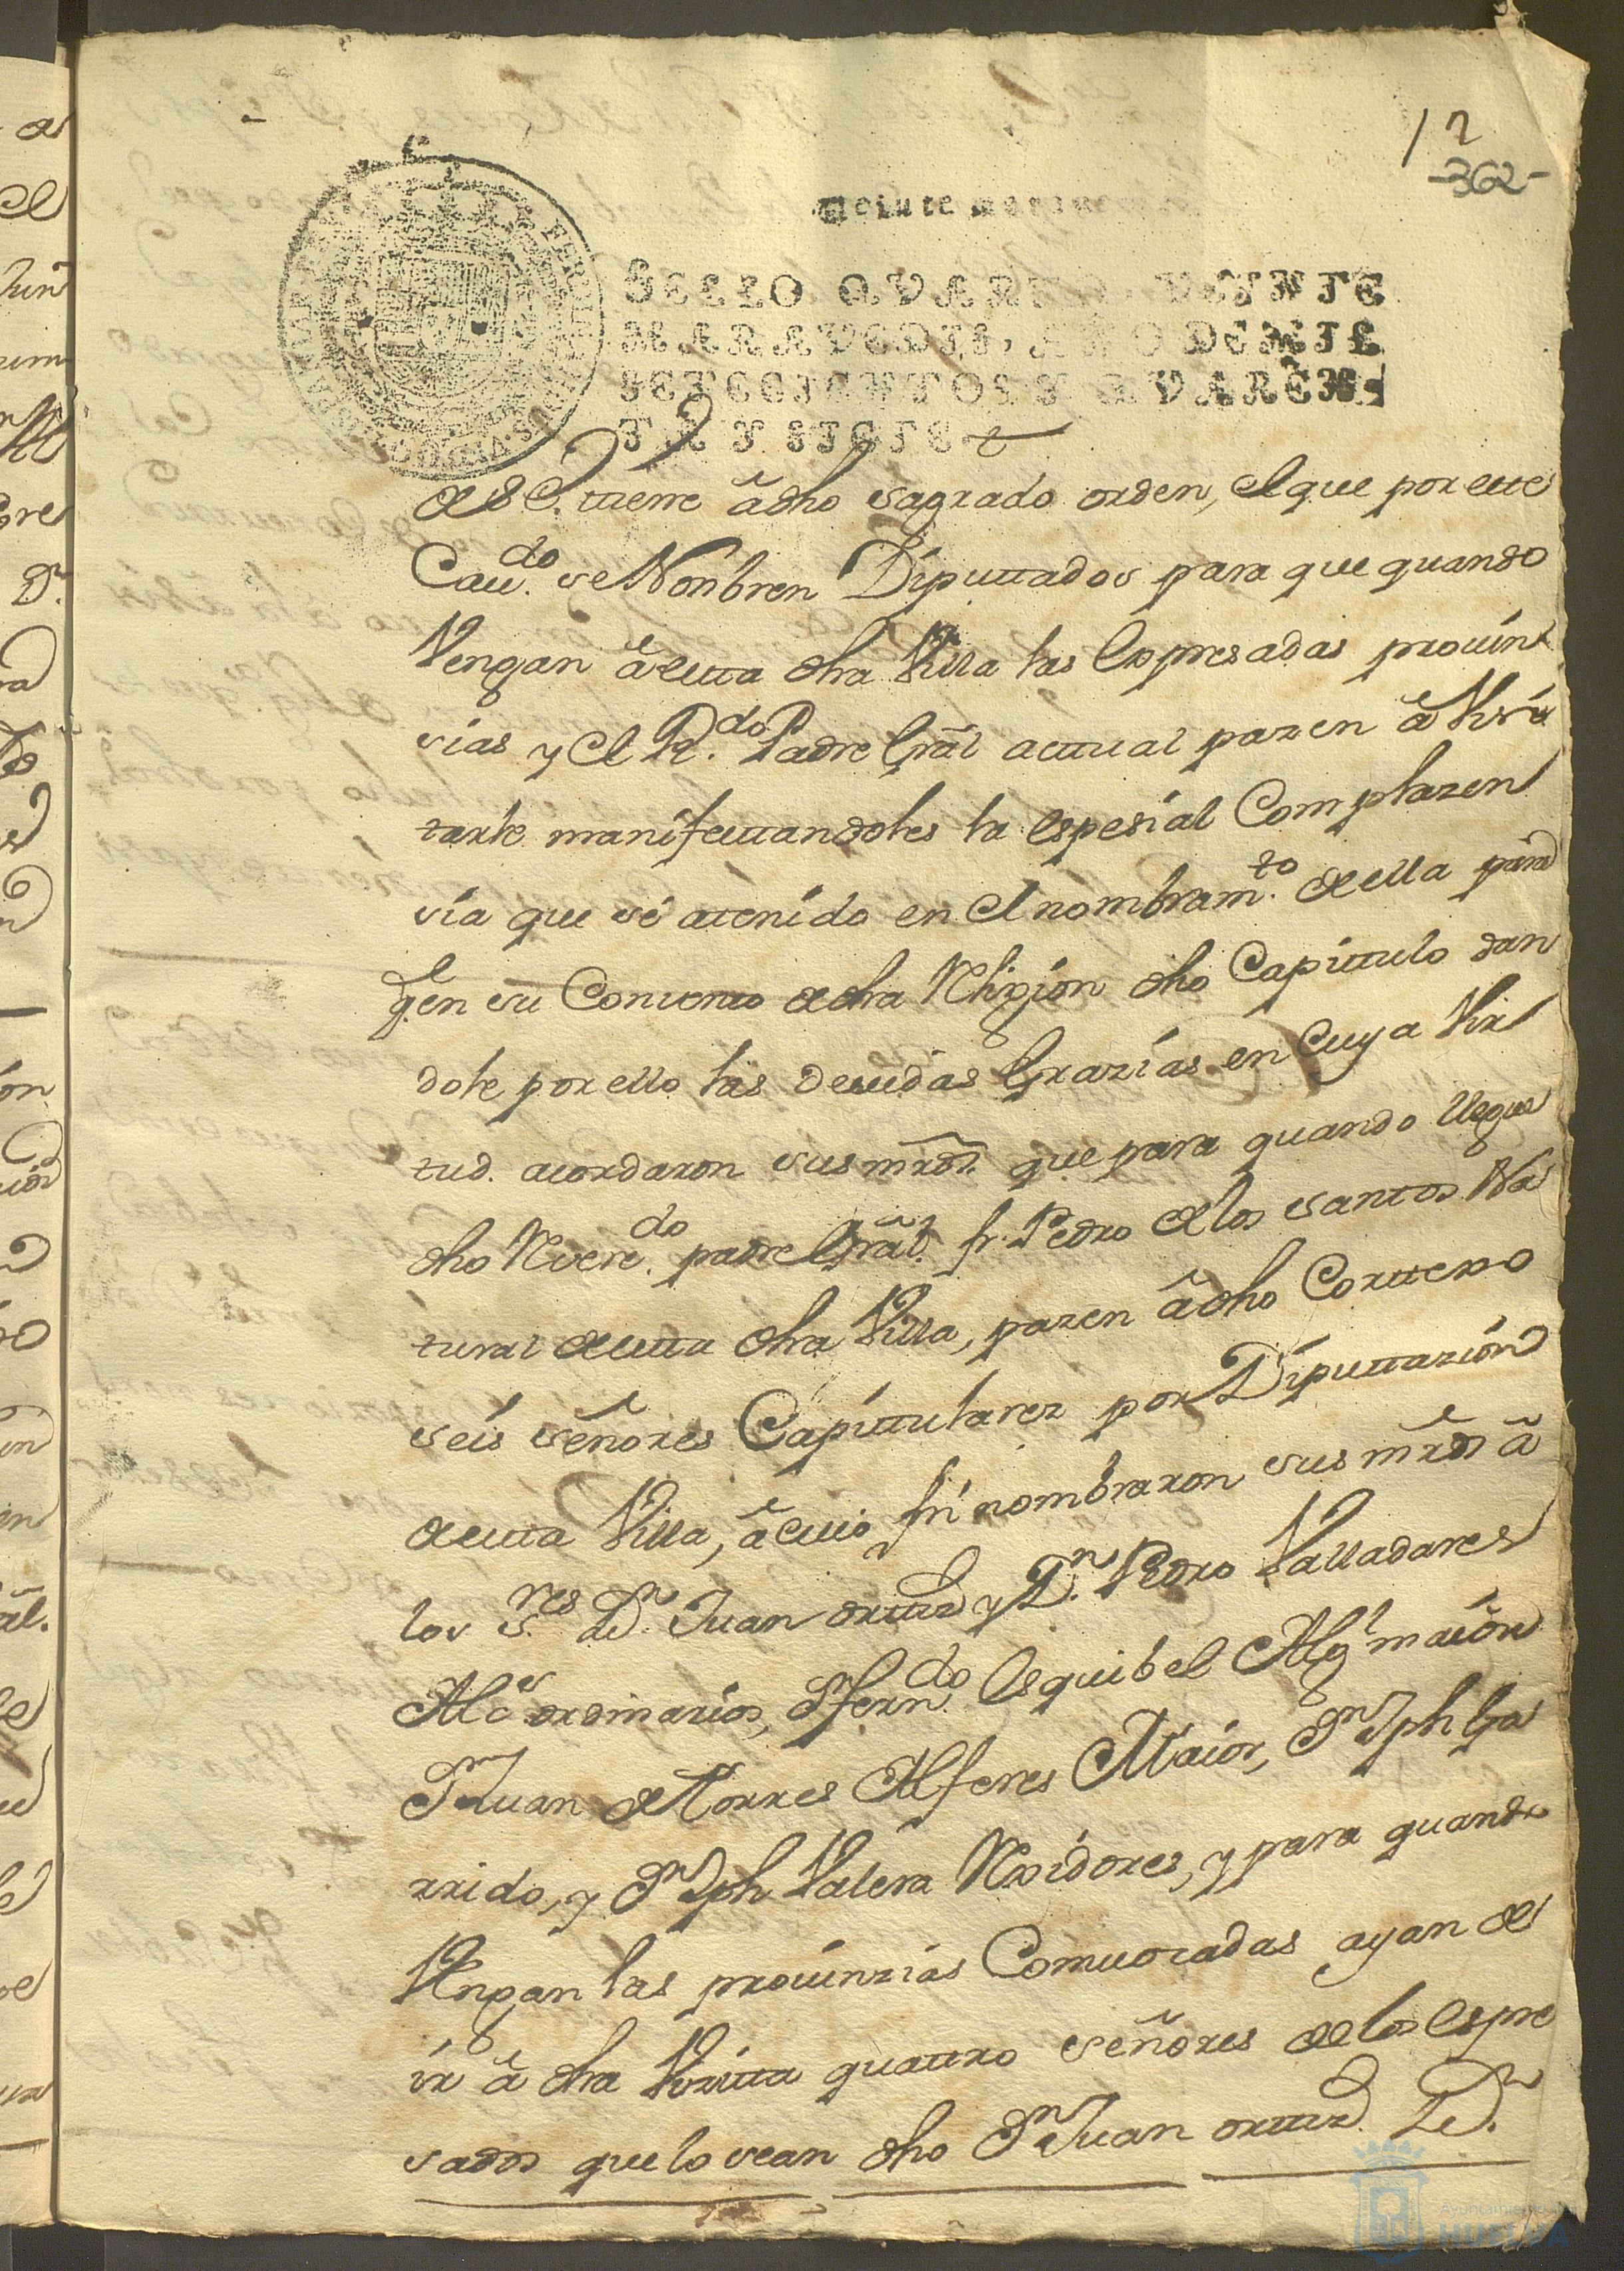 12
-362-
Veinte maravedis
SELLO QVARTO, VEINTE
MARAVEDIS, AÑO DE MIL
SETECIENTOS Y QVAREN-
TA Y SIETE
tiene â dho sagrado orden, el que por este
Cau.do se Nonbren Diputtados para que quando
Vengan â estta dha Villa las Expresadas prouin
sias y el R.do Padre Grâl acttual pazen â Visi
tarle manifesttandoles la espesial Complazen
sia que sê atenido en el nombram.to de ella para
q.e en su Convento de dha Religion dho Capittulo dan
dole por ello las deuidas Grazias en Cuya Vir
tud. acordaron sus mrds. que para quando llegue
dho Rvere.do padre Grâl. fr. Pedro de los santos Na
tural de estta dha Villa, pazen â dho Convento
seis señores Capittulares por Diputtazion
de estta Villa, â cuio fin nombraron sus mrds â
los S.res D.n Juan y D.n Pedro Valladares
Alc.s ordinarios, Dn fern.do Esquibel Alg.l maior
Dn Juan de Torres Alferes Maior, Dn Jph Ga
rrido, y Dn Jph Valera Rexidores, y para quando
Vengan las prouinzias Comuocadas ayan de
ir â dha Visitta quattro señores de los Espre
sados que lo sean dho Dn Juan D.n
Ayuntamiento de
HUELVA